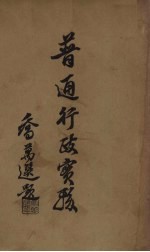 普通行政实騐
喬萬選題